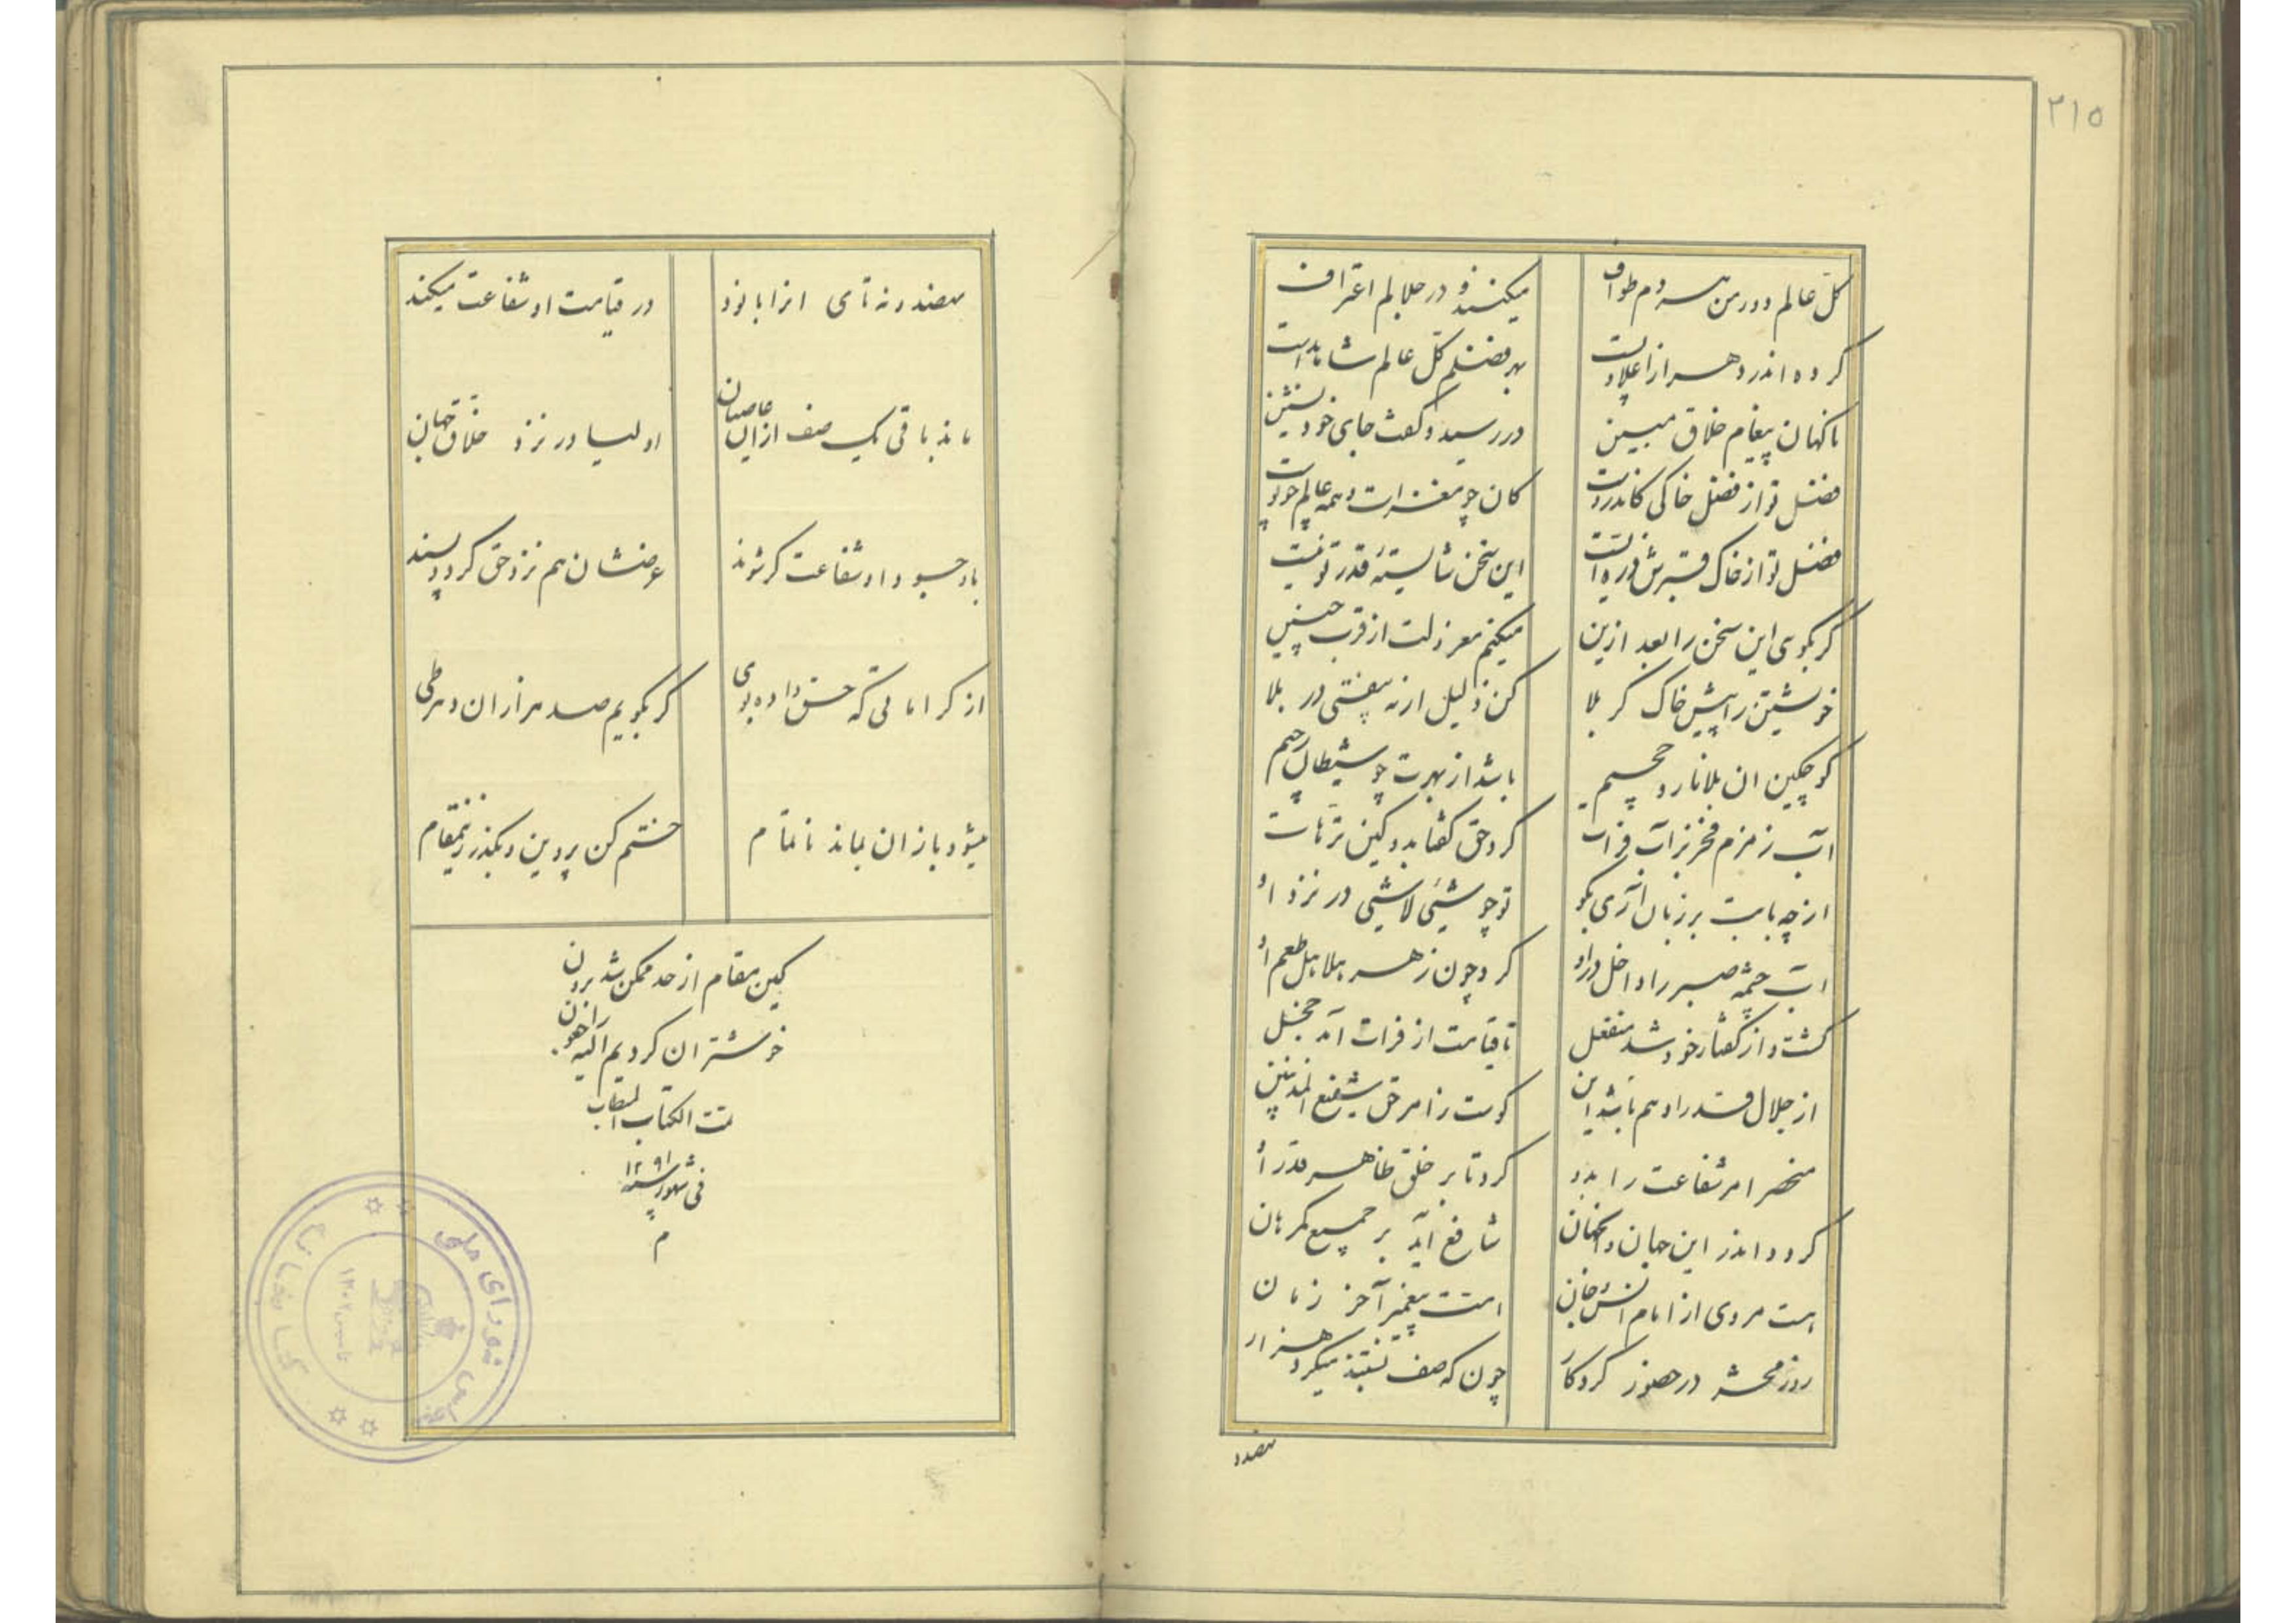 ۲۱۵
کل عالم دور من هر دم طواف میکنند و در جلالم اعتراف
کرده اندر دهر از اعلا و پست بهر فضلم کل عالم شاهد است
ناکهان پیغام خلاق مبین در رسید و کفت جای خود نشین
فضل تو از فضل خاکی کاندروست کان چو مغز است و همه عالم چو پوست
فضل تو از خاک قبرش ذره ایست این سخن شایستهٔ قدر تو نیست
کر بکوی این سخن را بعد ازین میکنم معزولت از قرب چنین
خویشتن را پیش خاک کربلا کن ذلیل ارنه بیفتی در بلا
کوچکین ان بلا نار و جحیم باشد از بهرت چو شیطان رجیم
آب زمزم فخر بر آب فرات کرد حق کفتا بدو کین ترهات
از چه بابت بر زبان آری بکو تو چو شیئی لاشیئی در نزد او
آب چشمه صبر را داخل در او کرد چون زهر هلاهل طعم او
کشت و از کفتار خود شد منفعل تا قیامت از فرات آمد خجل
از جلال قدر او هم باشد این کوست ز امر حق شفیع المذنبین
منحصر امر شفاعت را بدو کرد تا بر خلق ظاهر قدر او
کردد اندر این جهان و انجهان شافع آید بر جمیع کمرهان
هست مروی از امام انس و جان امت پیغمبر آخر زمان
روز محشر در حضور کردکار چون که صف بستند میکردد هزار
نهصد و
نهصد و نه تای از انها بانود در قیامت او شفاعت میکند
ماند باقی یک صف از آن عاصیان اولیا در نزد خلاق جهان
با وجود او شفاعت کر شوند عرضشان هم نزد حق کردد پسند
از کراماتی که حق داده بوی کر بکویم صد هزاران دهر طی
میشود باز ان بماند ناتمام ختم کن پروین و بکذر زینمقام
کین مقام از حد ممکن شد برون
خوشتر ان کردیم الیه راجعون
تمت الکتاب
فی شهور سنه ۱۲۹۱
م
مجلس شورای ملی
کتابخانه